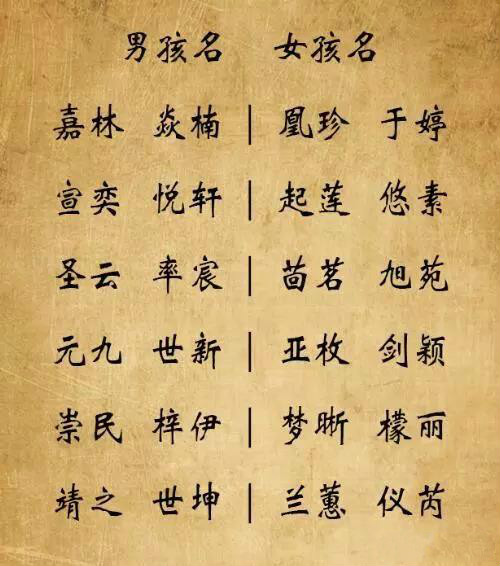 男孩名 女孩名
嘉林 焱楠 | 凰珍 于婷
宣奕 悦轩 | 起莲 悠素
圣云 率宸 | 茴茗 旭苑
元九 世新 | 亚枚 剑颖
崇民 梓伊 | 梦晰 檬丽
靖之 世坤 | 兰蕙 仪芮